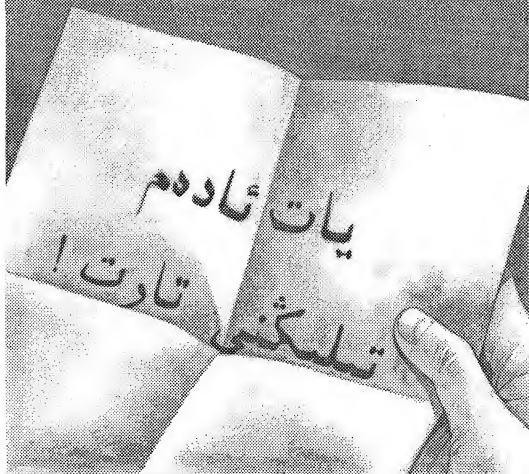 يات ئادەم
تىلىڭنى تارت !